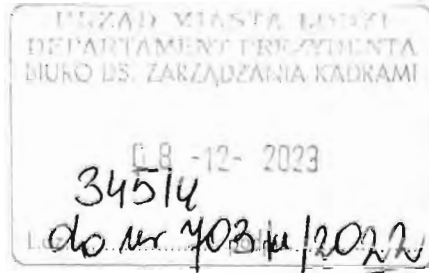 URZĄD MIASTA ŁODZI
DEPARTAMENT PREZYDENTA
BIURO DS. ZARZĄDZANIA KADRAMI
08 -12- 2023
345/4
do nr 703 /2022